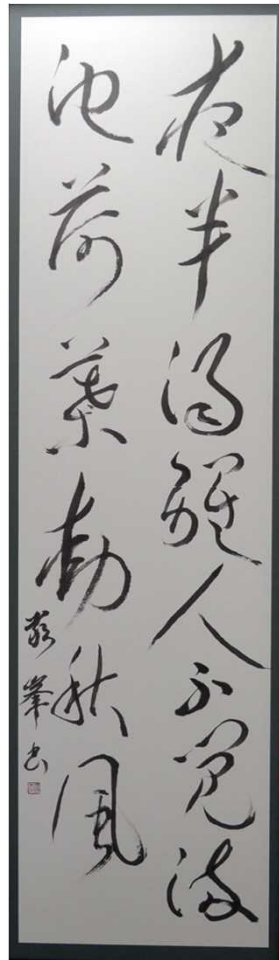 夜半酒醒人不覺滿
池荷葉動秋風
敬峯書